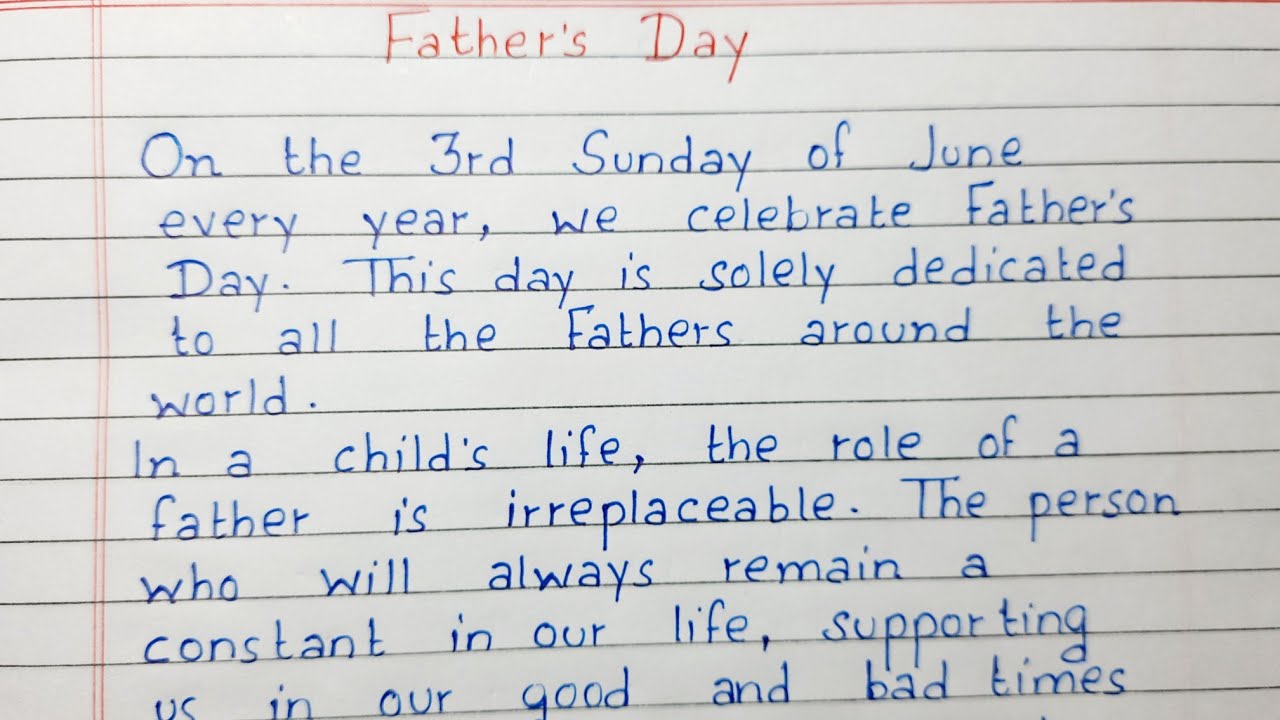 Father's Day
On the 3rd Sunday of June
every year, we celebrate Father's
Day. This day is solely dedicated
to all the Fathers around the
world.
In a child's life, the role of a
father is irreplaceable. The person
who will always remain a
constant in our life, supporting
us in our good and bad times